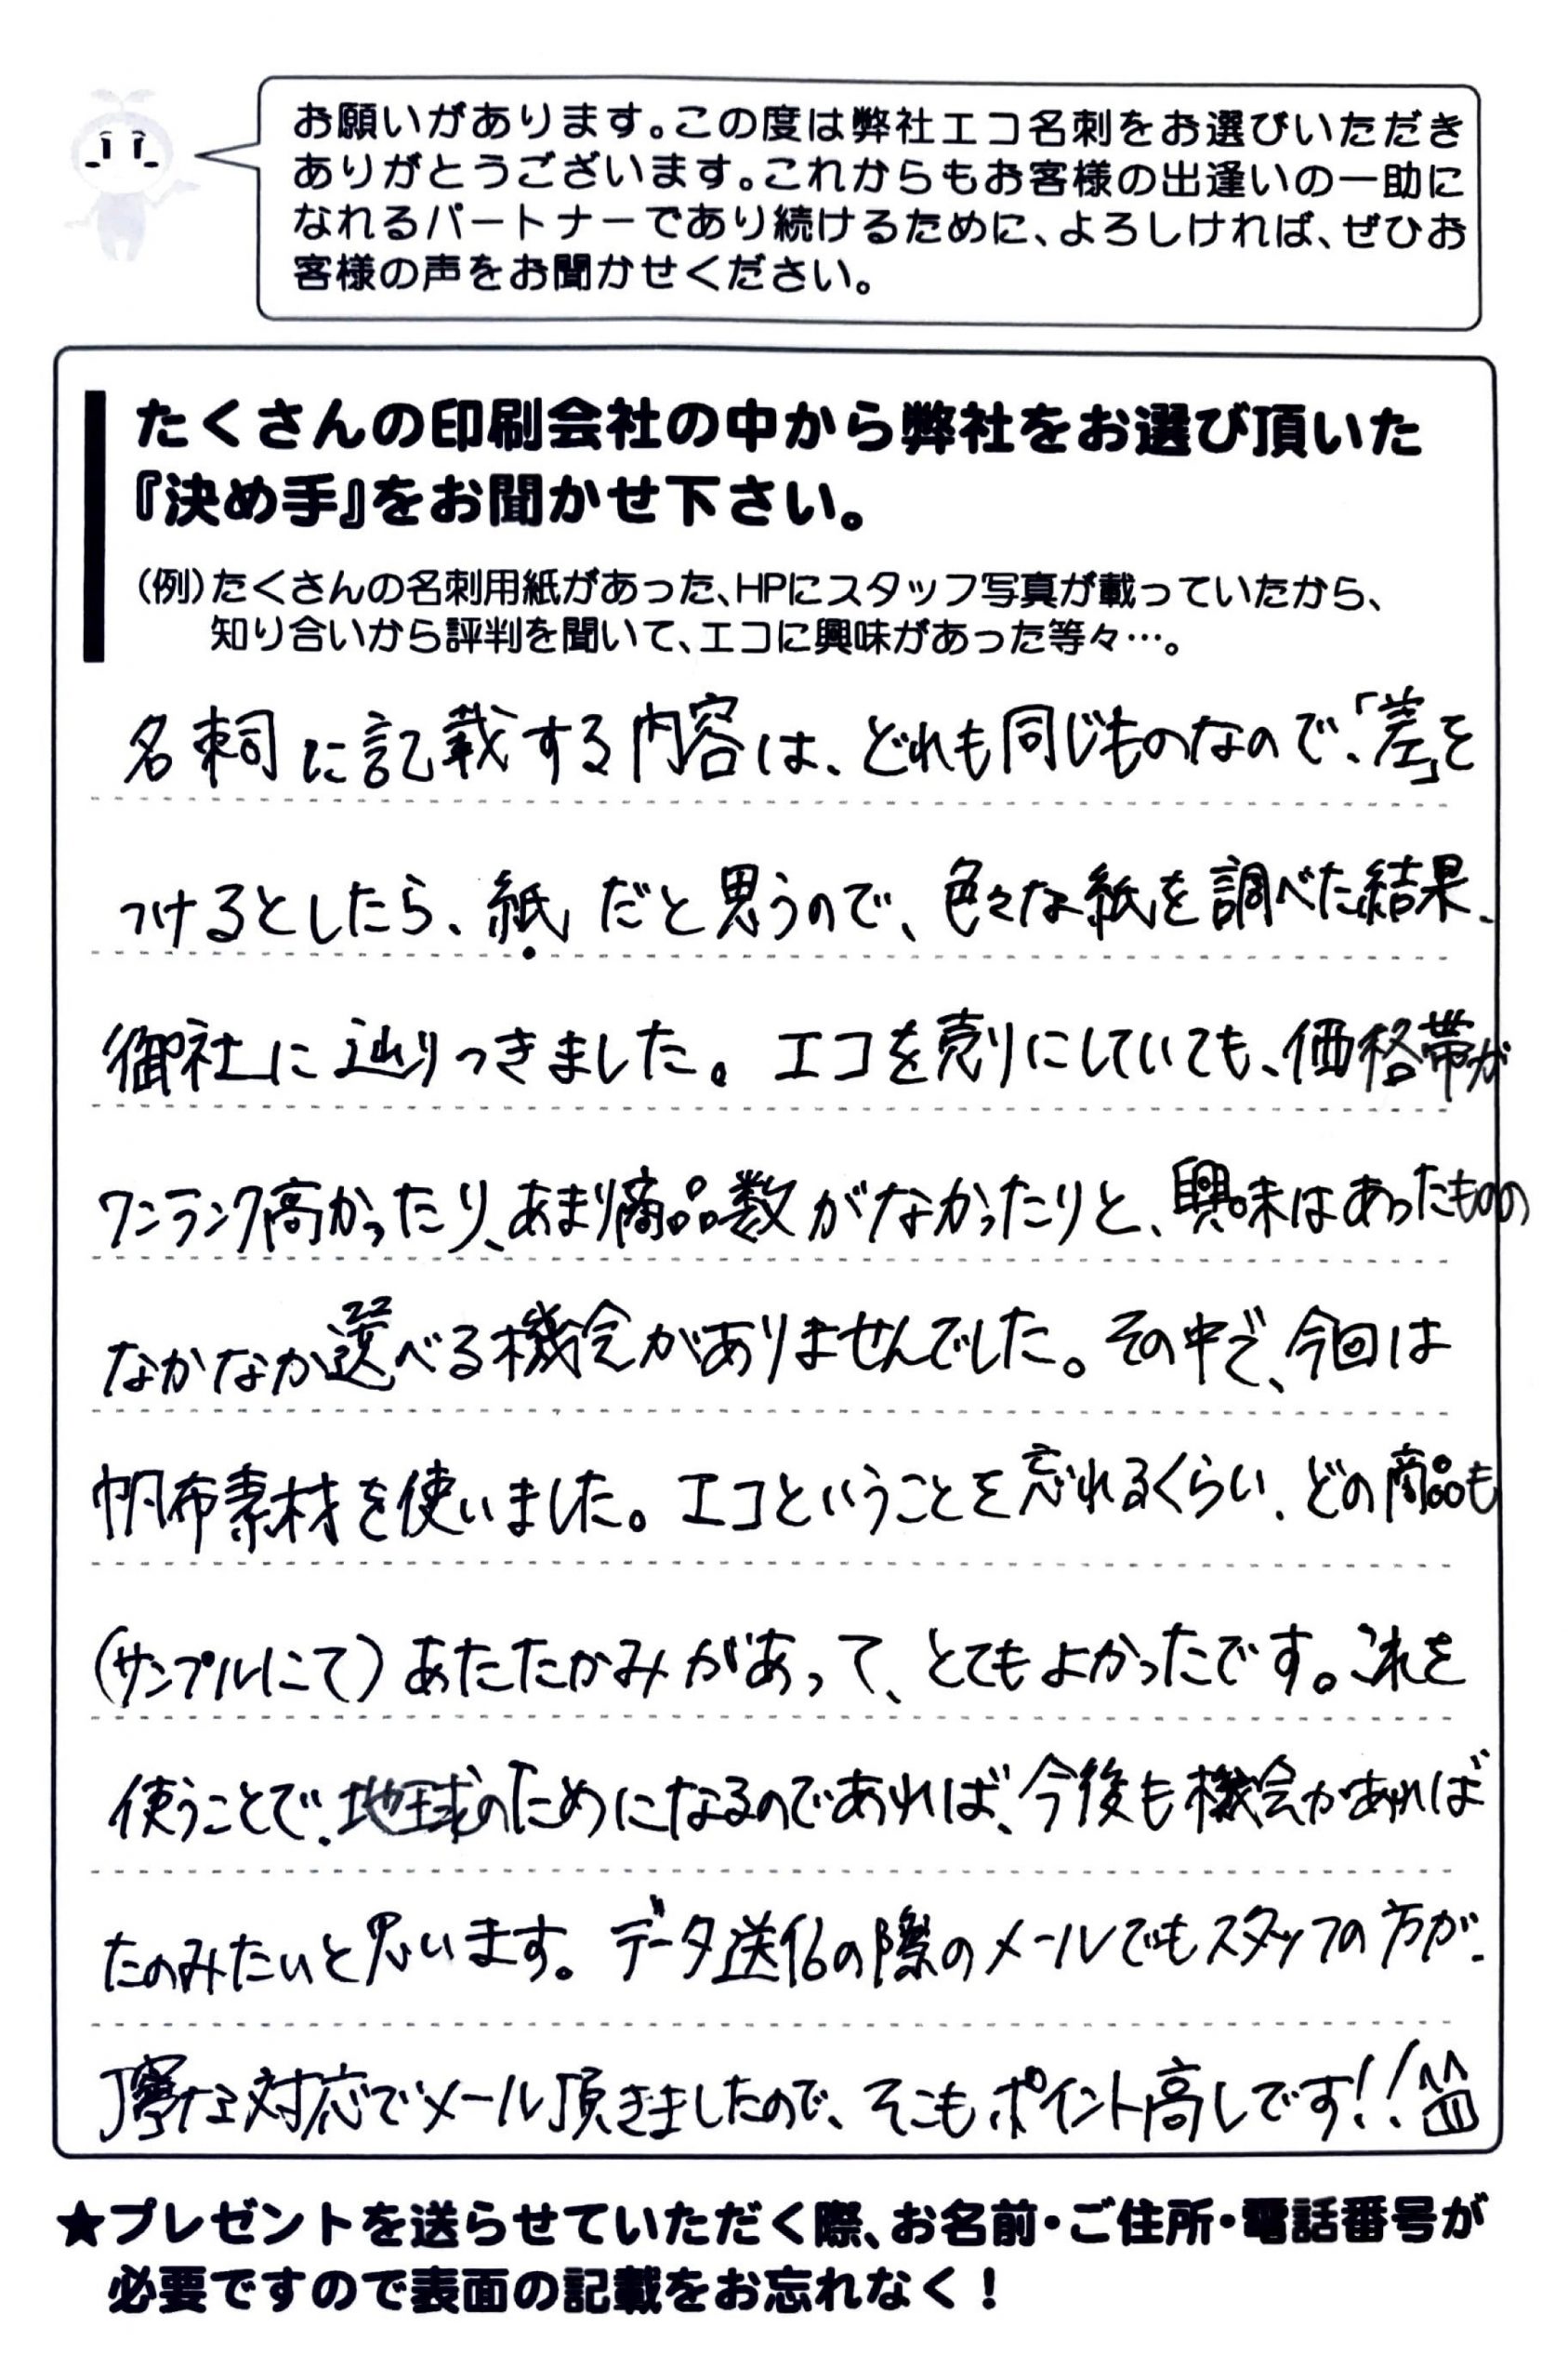 お願いがあります。この度は弊社エコ名刺をお選びいただき
ありがとうございます。これからもお客様の出逢いの一助に
なれるパートナーであり続けるために、よろしければ、ぜひお
客様の声をお聞かせください。
たくさんの印刷会社の中から弊社をお選び頂いた
『決め手』をお聞かせ下さい。
(例)たくさんの名刺用紙があった、HPにスタッフ写真が載っていたから、
知り合いから評判を聞いて、エコに興味があった等々…。
名刺に記載する内容は、どれも同じものなので、「差」を
つけるとしたら、紙だと思うので、色々な紙を調べた結果、
御社に辿りつきました。エコを売りにしていても、価格帯が
ワンランク高かったり、あまり商品数がなかったりと、興味はあったものの
なかなか選べる機会がありませんでした。その中で、今回は
帆布素材を使いました。エコということを忘れるくらい、どの商品も
(サンプルにて)あたたかみがあって、とてもよかったです。これを
使うことで、地球のためになるのであれば、今後も機会があれば
たのみたいと思います。データ送信の際のメールでもスタッフの方が、
丁寧な対応でメール頂きましたので、そこもポイント高しです!!
★プレゼントを送らせていただく際、お名前・ご住所・電話番号が
必要ですので表面の記載をお忘れなく!